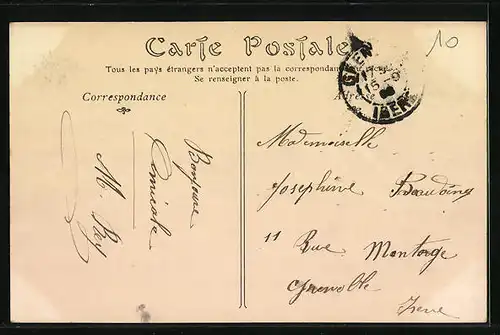 Carte Postale
Tous les pays étrangers n'acceptent pas la correspondance
Se renseigner à la poste.
Correspondance
10
ISÈRE
Bonjour
Amicale
M. Rey
Mademoiselle
Joséphine
11 Rue Montorge
Grenoble
Isère